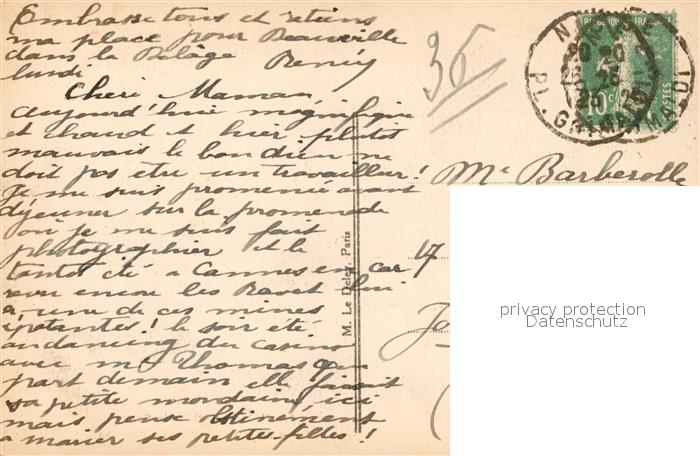 Embrasse tous et retiens
ma place pour Deauville
dans la Renée
lundi
Cheri Maman
aujourd'hui magnifique
et chaud et hier plutot
mauvais le bon dieu ne
doit pas etre un travailleur!
Je me suis promenée avant
déjeuner sur la promenade
où je me suis fait
photographier et le
tantot été a Cannes en car
revu encore les lui
a une de ces mines
épatantes! le soir été
au dancing du casino
avec me Thomas qui
part demain elle faisait
sa petite mondaine ici
mais pense obstinément
a marier ses petites-filles!
36
NICE
PL. GRIMALDI
REPUBLIQUE FRANÇAISE
10c
POSTES
Me Barberolle
17
M. Le Deley, Paris
privacy protection
Datenschutz